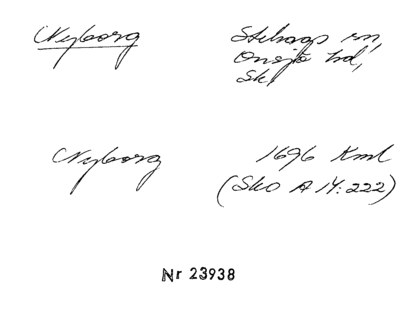 Nyborg
Stehags sn,
Onsjö hd,
Sk.
Nyborg 1696 Kml
(Sko A 14:222)
Nr 23938